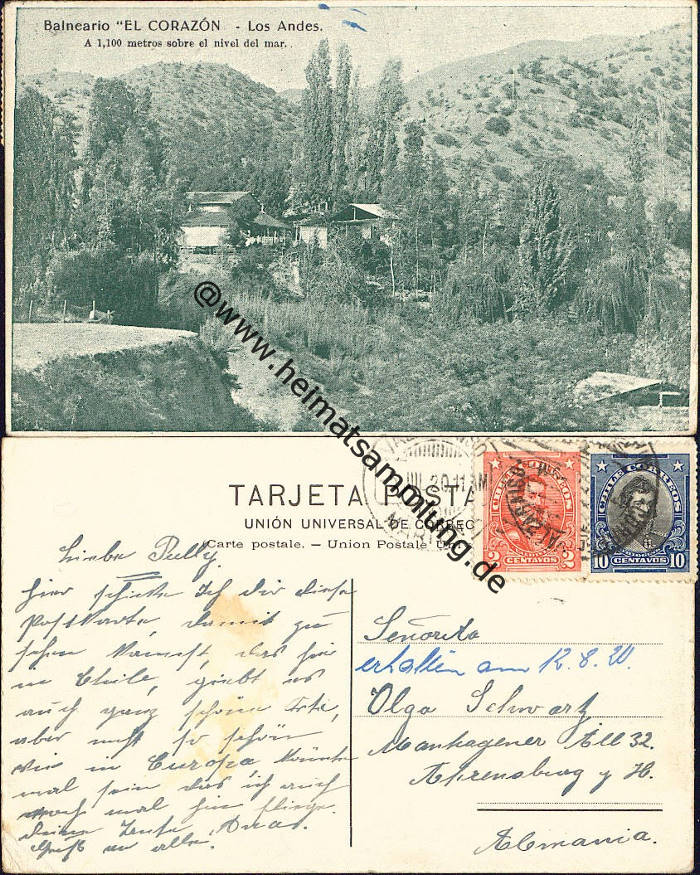 Balneario "EL CORAZÓN - Los Andes.
A 1,100 metros sobre el nivel del mar.
@www.heimatsammlung.de
TARJETA POSTA
UNIÓN UNIVERSAL DE CORREO
(Carte postale. - Union Postale U
JUL 20 11 AM
CHILE CORREOS
2 CENTAVOS 2
CHILE CORREOS
10 CENTAVOS 10
Liebe Pelly.
hier schicke Ich dir diese
Postkarte damit zu
sehen kannst, das hie
in Chile, giebt es
auch ganz schöne Orte,
aber nicht so schön
wie in Europa könnte
mal sein das ich auch
noch mal hin fliege.
deine Tante
Gruß an alle.
Señorita
erhalten am 12.8.20.
Olga Schwarz
Manhagener All 32.
Ahrensburg y H.
Alemania.